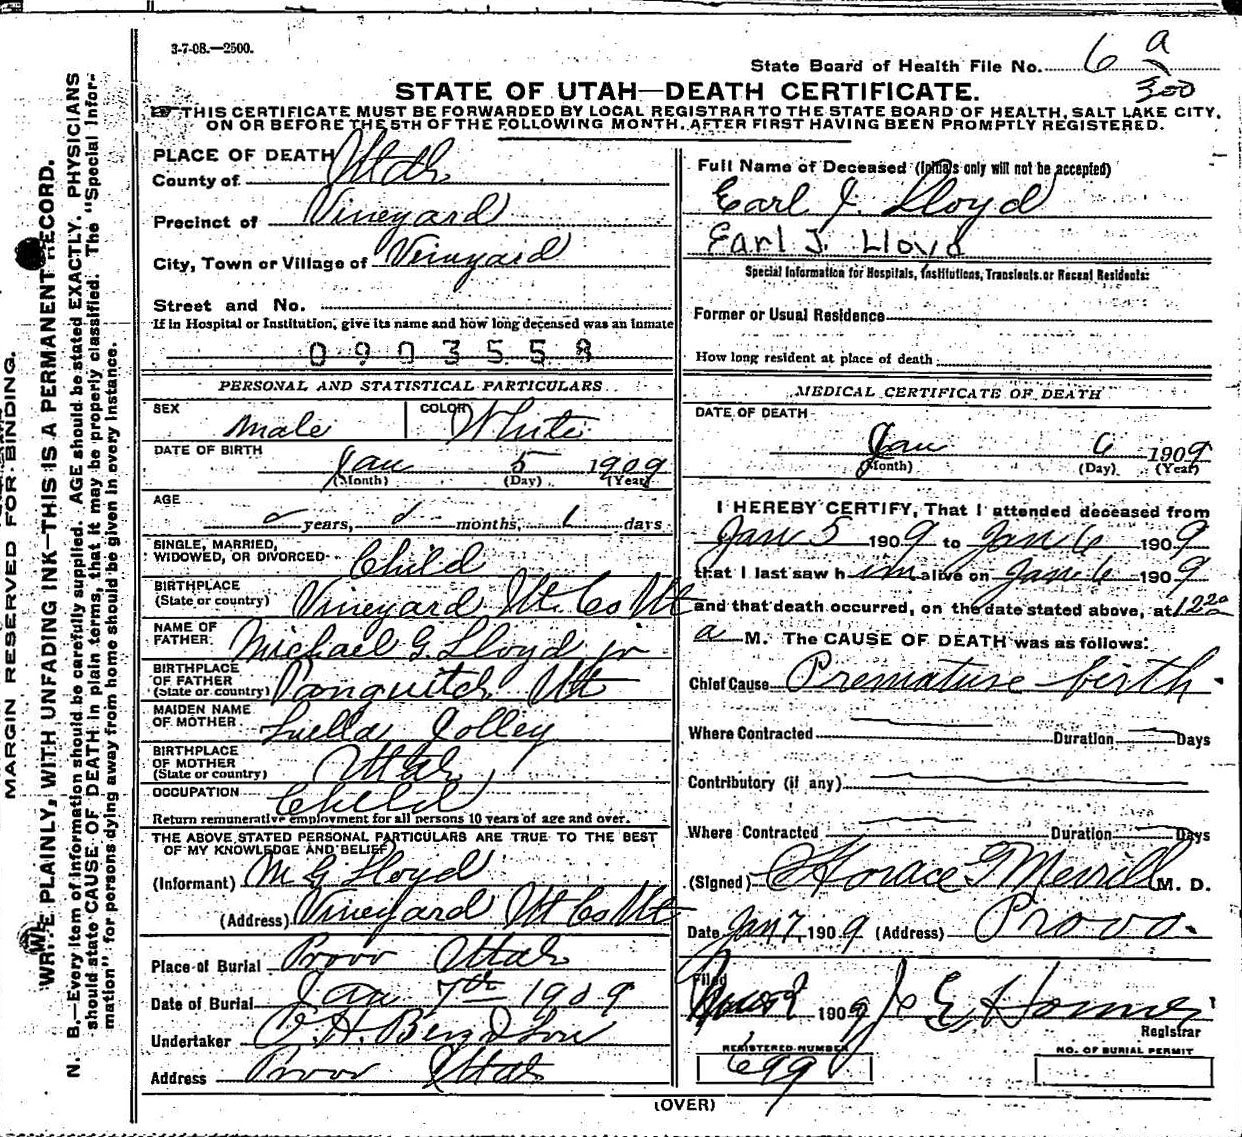 3-7-08.—2500.
State Board of Health File No. 6 a
300
STATE OF UTAH—DEATH CERTIFICATE.
THIS CERTIFICATE MUST BE FORWARDED BY LOCAL REGISTRAR TO THE STATE BOARD OF HEALTH, SALT LAKE CITY,
ON OR BEFORE THE 5TH OF THE FOLLOWING MONTH, AFTER FIRST HAVING BEEN PROMPTLY REGISTERED.
PLACE OF DEATH
County of Utah
Precinct of Vineyard
City, Town or Village of Vineyard
Street and No.
If in Hospital or Institution, give its name and how long deceased was an inmate
0903558
PERSONAL AND STATISTICAL PARTICULARS
SEX Male COLOR White
DATE OF BIRTH
Jan 5 1909
(Month) (Day) (Year)
AGE
0 years, 0 months, 1 days
SINGLE, MARRIED,
WIDOWED, OR DIVORCED Child
BIRTHPLACE
(State or country) Vineyard Ut. Co Ut
NAME OF
FATHER Michael G. Lloyd jr
BIRTHPLACE
OF FATHER
(State or country) Panguitch Ut
MAIDEN NAME
OF MOTHER Luella Jolley
BIRTHPLACE
OF MOTHER
(State or country) Utah
OCCUPATION Child
Return remunerative employment for all persons 10 years of age and over.
THE ABOVE STATED PERSONAL PARTICULARS ARE TRUE TO THE BEST
OF MY KNOWLEDGE AND BELIEF
(Informant) M G Lloyd
(Address) Vineyard Ut Co Ut
Place of Burial Provo Utah
Date of Burial Jan 7th 1909
Undertaker
Address Provo Utah
Full Name of Deceased (Initials only will not be accepted)
Earl J. Lloyd
Earl J. Lloyd
Special Information for Hospitals, Institutions, Transients or Recent Residents:
Former or Usual Residence
How long resident at place of death
MEDICAL CERTIFICATE OF DEATH
DATE OF DEATH
Jan 6 1909
(Month) (Day) (Year)
I HEREBY CERTIFY, That I attended deceased from
Jan 5 1909 to Jan 6 1909
that I last saw h im alive on Jan 6 1909
and that death occurred, on the date stated above, at 12 20
a M. The CAUSE OF DEATH was as follows:
Chief Cause Premature birth.
Where Contracted Duration Days
Contributory (if any)
Where Contracted Duration Days
(Signed) Horace G Merrill M. D.
Date Jan 7, 1909 (Address) Provo.
Filed 1909
Registrar
REGISTERED NUMBER
699
NO. OF BURIAL PERMIT
(OVER)
MARGIN RESERVED FOR BINDING.
WRITE PLAINLY, WITH UNFADING INK—THIS IS A PERMANENT RECORD.
N. B.—Every item of information should be carefully supplied. AGE should be stated EXACTLY. PHYSICIANS
should state CAUSE OF DEATH in plain terms, that it may be properly classified. The "Special Infor-
mation" for persons dying away from home should be given in every instance.